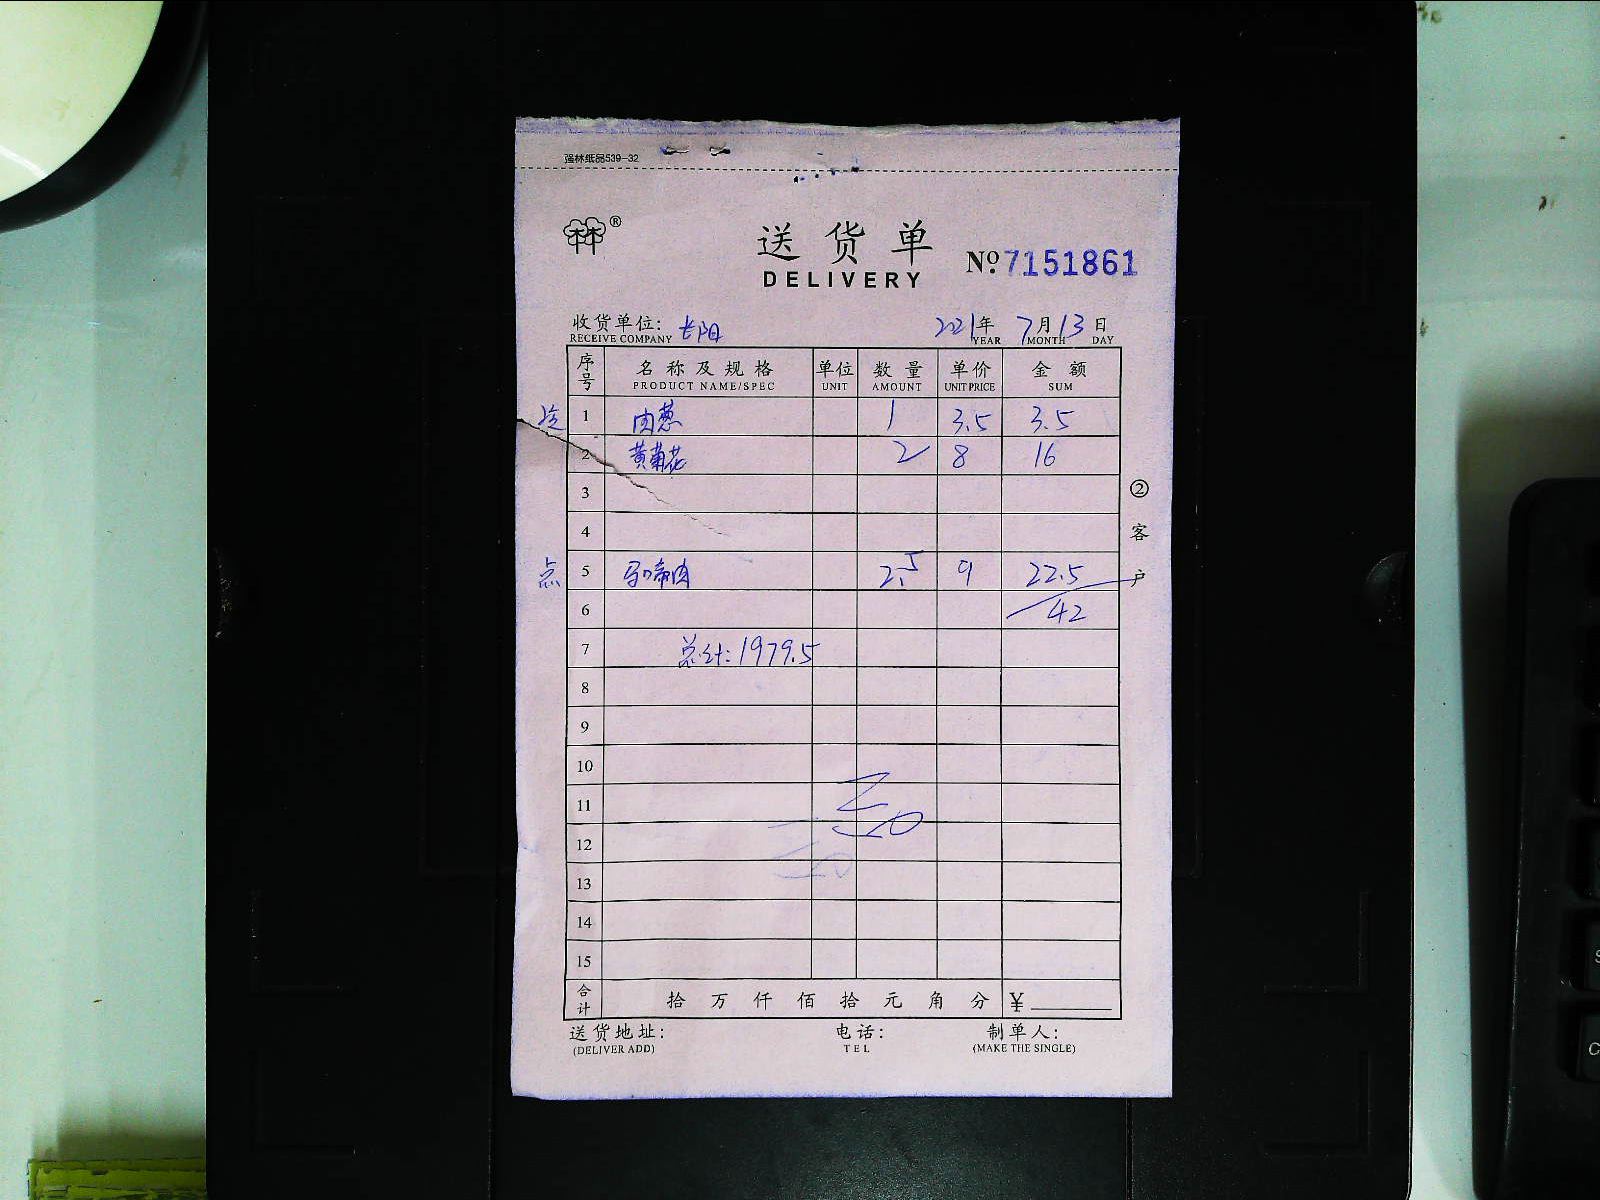 强林纸品539-32
林林®
送货单
DELIVERY
No.7151861
收货单位: 长阳 2021年7月13日
RECEIVE COMPANY YEAR MONTH DAY
序号 名称及规格 单位 数量 单价 金额
PRODUCT NAME/SPEC UNIT AMOUNT UNIT PRICE SUM
1 肉葱 1 3.5 3.5
2 黄菊花 2 8 16
3
② 客户
4
点 5 马啼肉 2.5 9 22.5
6 42
7 总计:1979.5
8
9
10
11
12
13
14
15
合计 拾 万 仟 佰 拾 元 角 分 ¥
送货地址: 电话: 制单人:
(DELIVER ADD) TEL (MAKE THE SINGLE)